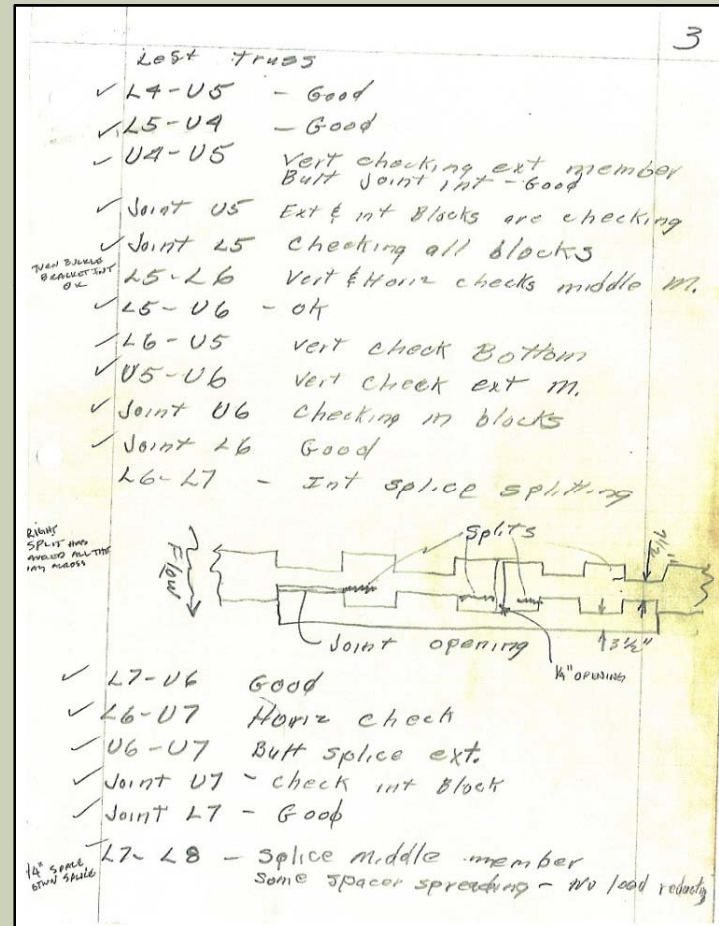 3
Left Truss
✓ L4-U5 - Good
✓ L5-U4 - Good
✓ U4-U5 Vert checking ext member
Butt Joint int - Good
✓ Joint U5 Ext & int Blocks are checking
✓ Joint L5 Checking all blocks
TURN BUCKLE
BRACKET INT
OK
L5-L6 Vert & Horiz checks middle m.
✓ L5-U6 - ok
✓ L6-U5 vert check Bottom
✓ U5-U6 vert check ext m.
✓ Joint U6 checking in blocks
✓ Joint L6 Good
L6-L7 - Int splice splitting
RIGHT
SPLIT HAS
ALL THE
WAY ACROSS
Flow
Splits
7 1/2"
Joint opening
3 1/2"
1/4" OPENING
✓ L7-U6 Good
✓ L6-U7 Horiz check
✓ U6-U7 Butt splice ext.
✓ Joint U7 - check int Block
✓ Joint L7 - Good
1/4" SPACE
BTWN SPLICE
L7-L8 - Splice middle member
some spacer spreading - No load reducting